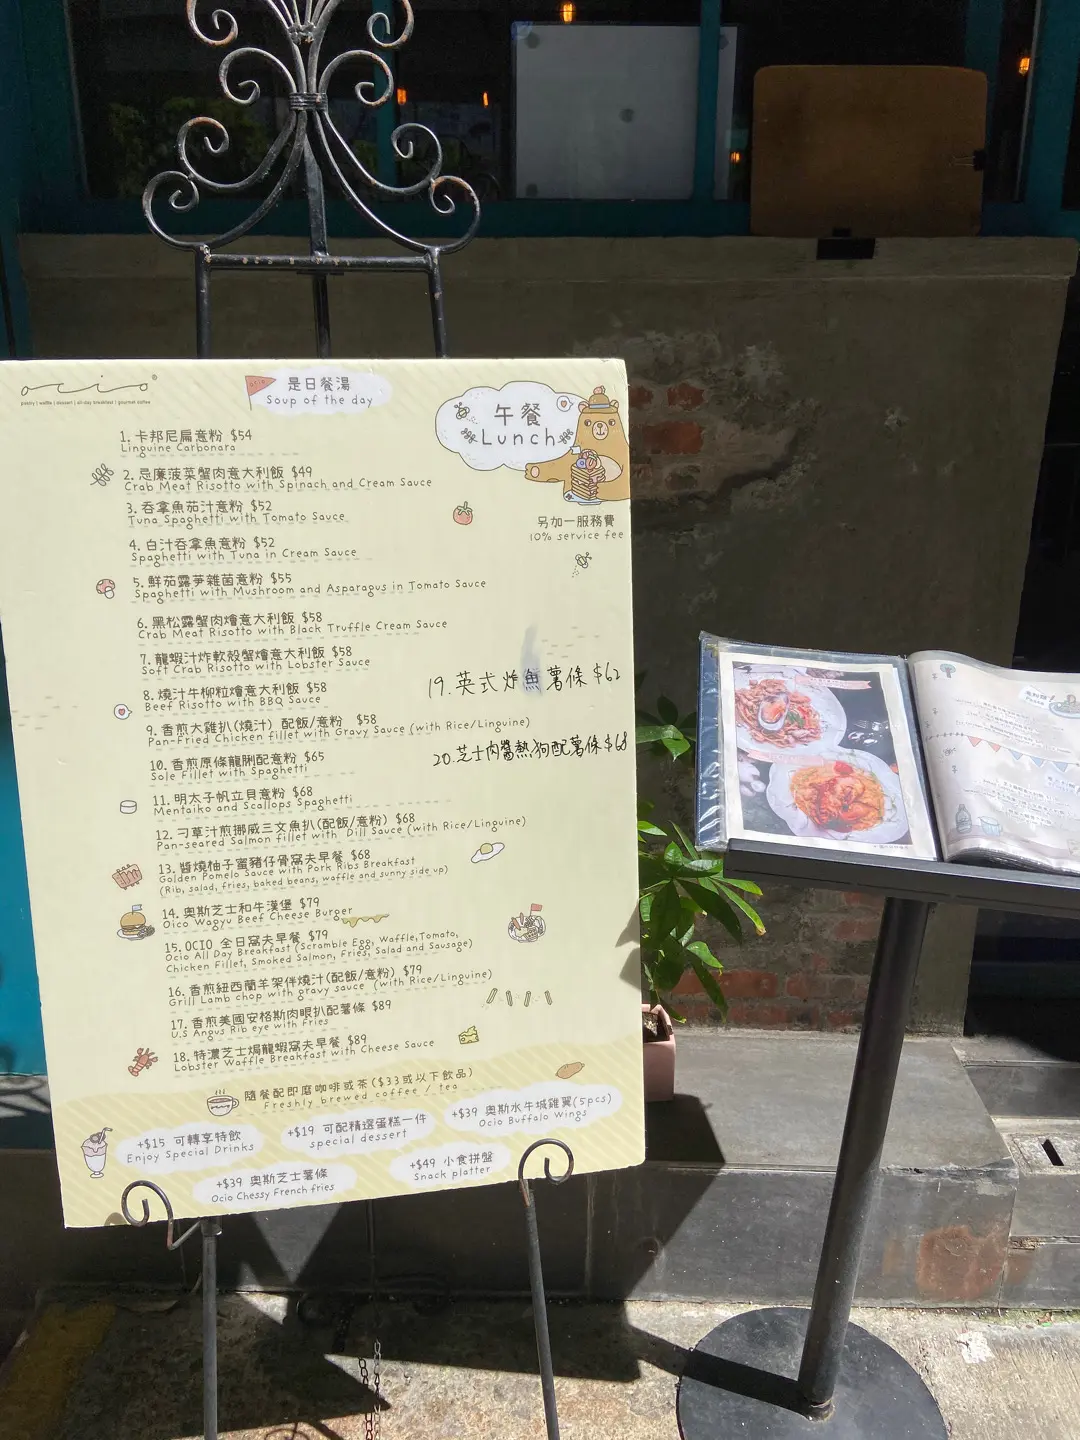 ocio
pastry | waffle | dessert | all-day breakfast | gourmet coffee
是日餐湯
Soup of the day
午餐
Lunch
另加一服務費
10% service fee
1. 卡邦尼扁意粉 $54
Linguine Carbonara
2. 忌廉菠菜蟹肉意大利飯 $49
Crab Meat Risotto with Spinach and Cream Sauce
3. 吞拿魚茄汁意粉 $52
Tuna Spaghetti with Tomato Sauce
4. 白汁吞拿魚意粉 $52
Spaghetti with Tuna in Cream Sauce
5. 鮮茄露笋雜菌意粉 $55
Spaghetti with Mushroom and Asparagus in Tomato Sauce
6. 黑松露蟹肉燴意大利飯 $58
Crab Meat Risotto with Black Truffle Cream Sauce
7. 龍蝦汁炸軟殼蟹燴意大利飯 $58
Soft Crab Risotto with Lobster Sauce
8. 燒汁牛柳粒燴意大利飯 $58
Beef Risotto with BBQ Sauce
9. 香煎大雞扒(燒汁) 配飯/意粉 $58
Pan-Fried Chicken fillet with Gravy Sauce (with Rice/Linguine)
10. 香煎原條龍脷配意粉 $65
Sole Fillet with Spaghetti
11. 明太子帆立貝意粉 $68
Mentaiko and Scallops Spaghetti
12. 刁草汁煎挪威三文魚扒(配飯/意粉) $68
Pan-seared Salmon fillet with Dill Sauce (with Rice/Linguine)
13. 醬燒柚子蜜豬仔骨窩夫早餐 $68
Golden Pomelo Sauce with Pork Ribs Breakfast
(Rib, salad, fries, baked beans, waffle and sunny side up)
14. 奧斯芝士和牛漢堡 $79
Oico Wagyu Beef Cheese Burger
15. OCIO 全日窩夫早餐 $79
Ocio All Day Breakfast (Scramble Egg, Waffle,Tomato,
Chicken Fillet, Smoked Salmon, Fries, Salad and Sausage)
16. 香煎紐西蘭羊架伴燒汁(配飯/意粉) $79
Grill Lamb chop with gravy sauce (with Rice/Linguine)
17. 香煎美國安格斯肉眼扒配薯條 $89
U.S Angus Rib eye with Fries
18. 特濃芝士焗龍蝦窩夫早餐 $89
Lobster Waffle Breakfast with Cheese Sauce
19. 英式炸魚薯條 $62
20. 芝士肉醬熱狗配薯條 $68
隨餐配即磨咖啡或茶($33或以下飲品)
Freshly brewed coffee / tea
+$15 可轉享特飲
Enjoy Special Drinks
+$19 可配精選蛋糕一件
special dessert
+$39 奧斯水牛城雞翼(5pcs)
Ocio Buffalo Wings
+$39 奧斯芝士薯條
Ocio Chessy French fries
+$49 小食拼盤
Snack platter